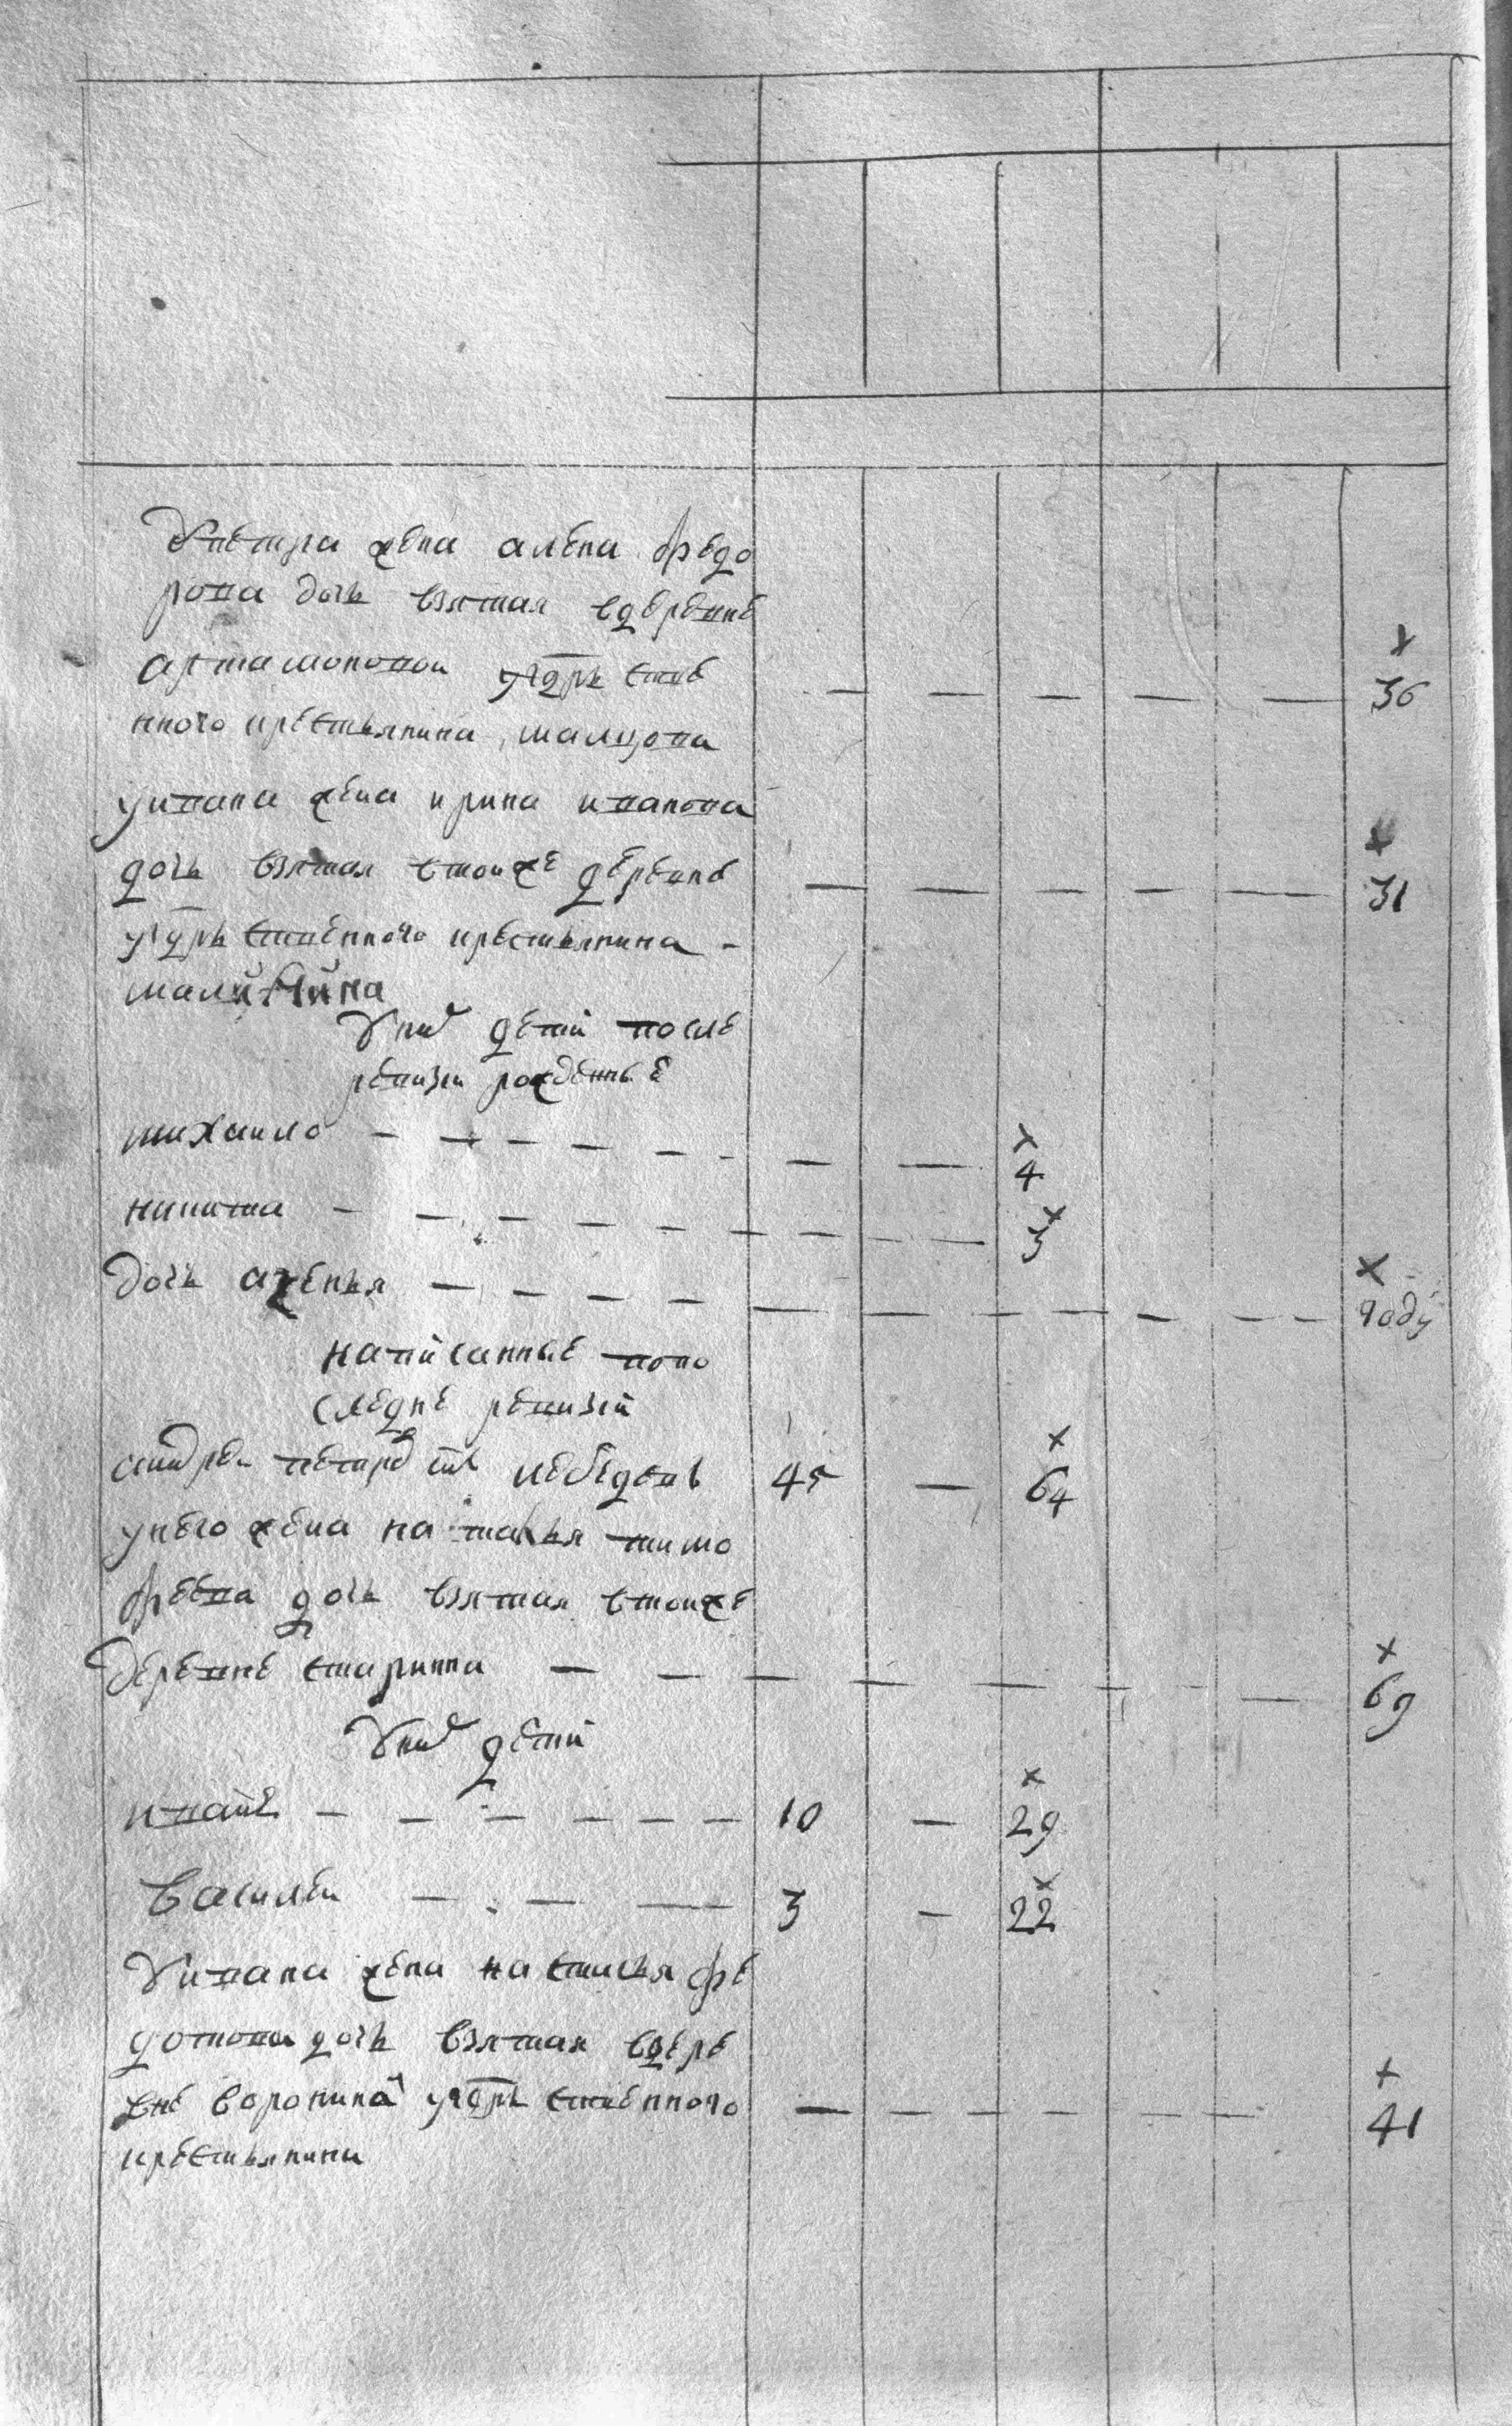 У петра жена алена федо
рова дочь взятая вдеревне
артамоновои угдрь стве
нного крестьянина
у ивана жена ирина иванова
дочь взятая втоиже деревне
угдрь ственного крестьянина -
У них детй после
ревизи рожденые
михаило — — — — — — — — × 4
никита — — — — — — — — — × 3
дочь аксенья — — — — — — — — — — × году
написанные впо
следне ревизий
андреи петров снъ лебедевъ 45 — × 64
у него жена наталья тимо
феева дочь взятая втоиже
деревне старинна — — — — — — — — × 69
У них детй
иванъ — — — — — — 10 — × 29
василеи — — — 3 — × 22
У ивана жена настасья фе
дотова дочь взятая вдере
вне воронина угдрь ственного — — — — — — × 41
крестьянина
× 36
× 31